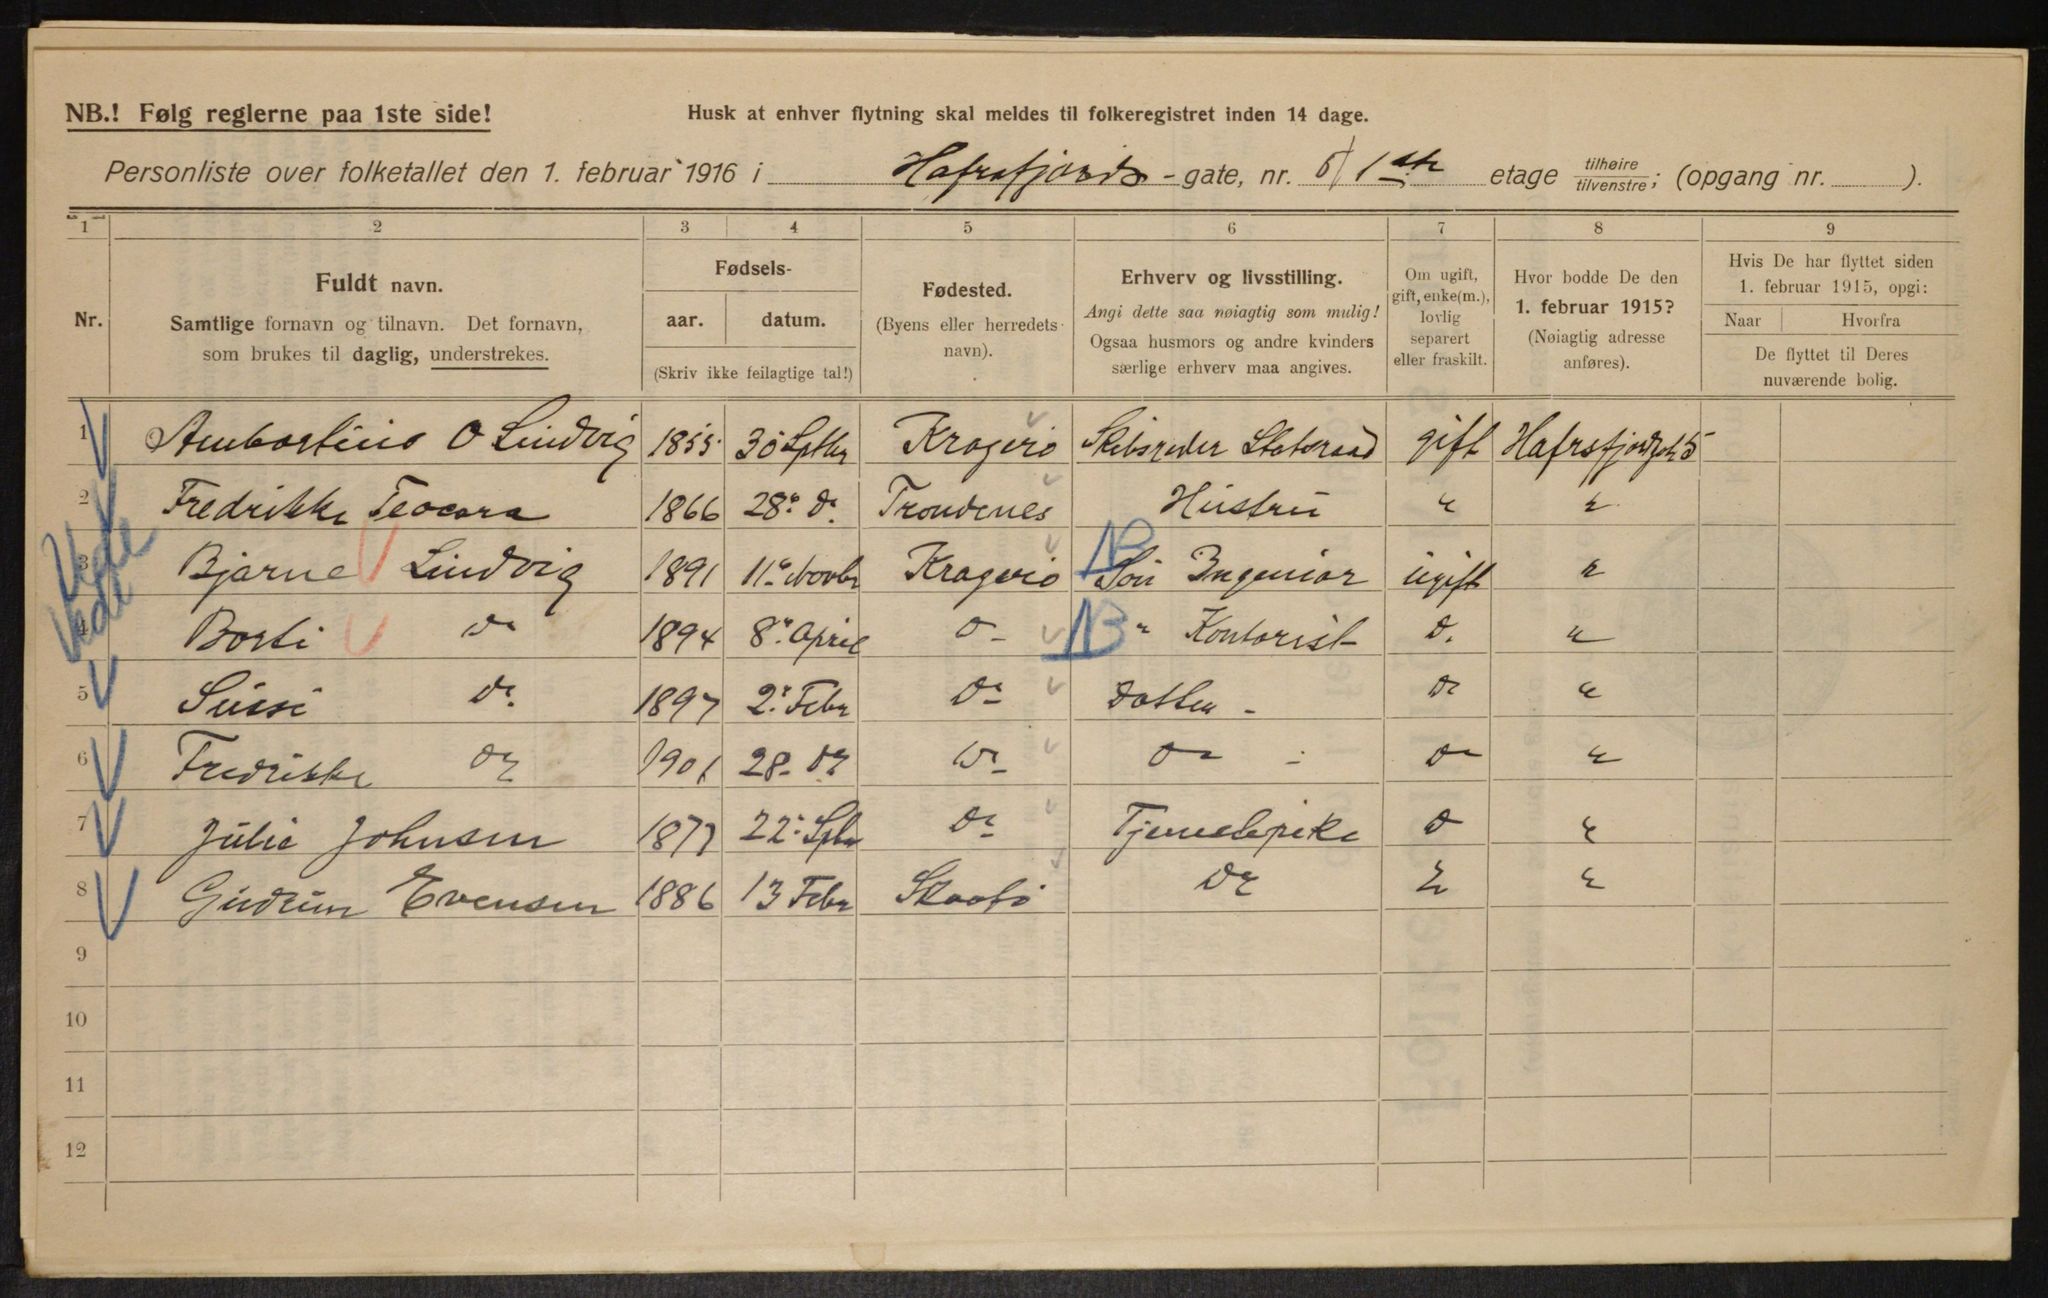 NB.! Følg reglerne paa 1ste side!
Husk at enhver flytning skal meldes til folkeregistret inden 14 dage.
Personliste over folketallet den 1. februar 1916 i Hafrsfjords - gate, nr. 5/1ste etage tilhøire/tilvenstre; (opgang nr. ).
1 2 3 4 5 6 7 8 9
Nr.
Fuldt navn.
Samtlige fornavn og tilnavn. Det fornavn,
som brukes til daglig, understrekes.
Fødsels-
aar. datum.
(Skriv ikke feilagtige tal!)
Fødested.
(Byens eller herredets
navn).
Erhverv og livsstilling.
Angi dette saa nøiagtig som mulig!
Ogsaa husmors og andre kvinders
særlige erhverv maa angives.
Om ugift,
gift, enke(m.),
lovlig
separert
eller fraskilt.
Hvor bodde De den
1. februar 1915?
(Nøiagtig adresse
anføres).
Hvis De har flyttet siden
1. februar 1915, opgi:
Naar Hvorfra
De flyttet til Deres
nuværende bolig.
1 Ambortius O Lindvig 1855 30 Sptbr Kragerø Skibsreder Statsraad gift Hafrsfjordgt 5
2 Fredrikke Teocara 1866 28. Do. Trondenes Hustru " "
3 Bjarne Lindvig 1891 11. Novbr Kragerø NB Søn Ingeniør ugift "
4 Borti Do 1894 8. April Do NB " Kontorist Do. "
5 Sussi Do. 1897 2. Febr Do Datter - Do "
6 Fredrikke Do 1901 28. Do Do Do - Do "
7 Julie Johnsen 1877 22. Sptbr Do Tjenestepike Do "
8 Gudrun Evensen 1886 13 Febr Skaatø Do " "
9
10
11
12